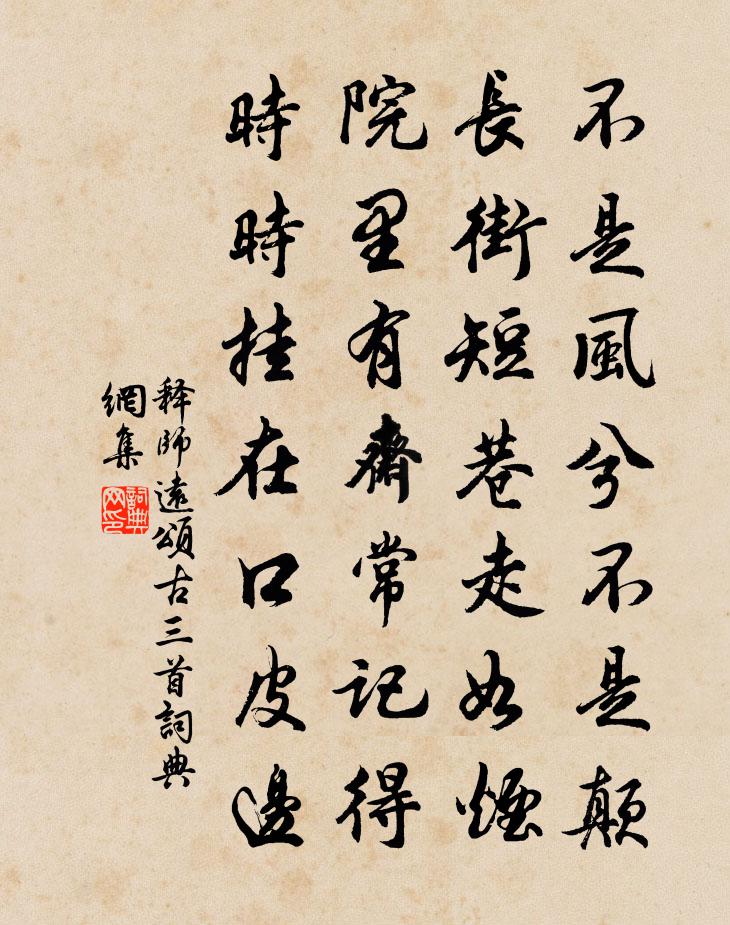 不是風兮不是顛
長街短巷走如煙
院里有齋常記得
時時挂在口皮邊
释師遠頌古三首詞典
網集
詞典網印